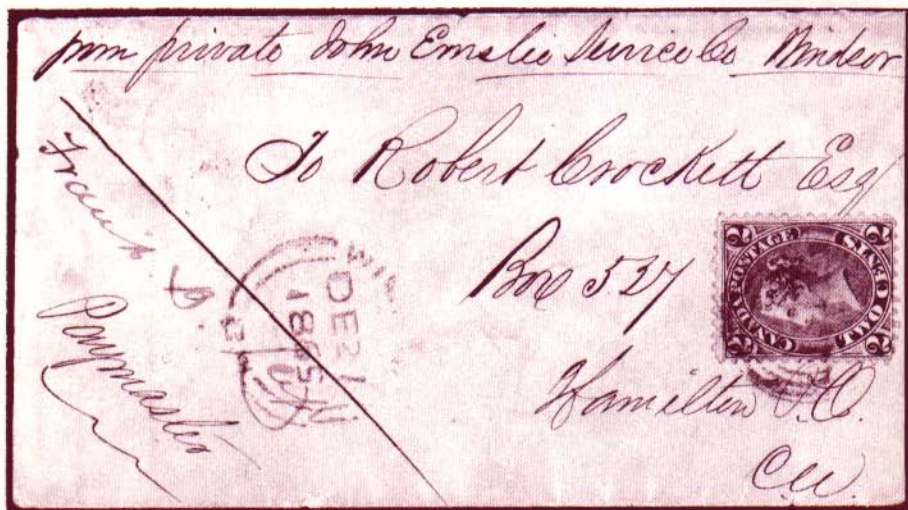 private John Emslie Service Co Windsor
To Robert Crockett Esq
Box 527
Hamilton P.O.
C.W.
Paymaster
DE 21
1865
CANADA POSTAGE
TWO CENTS
2
2
2
2